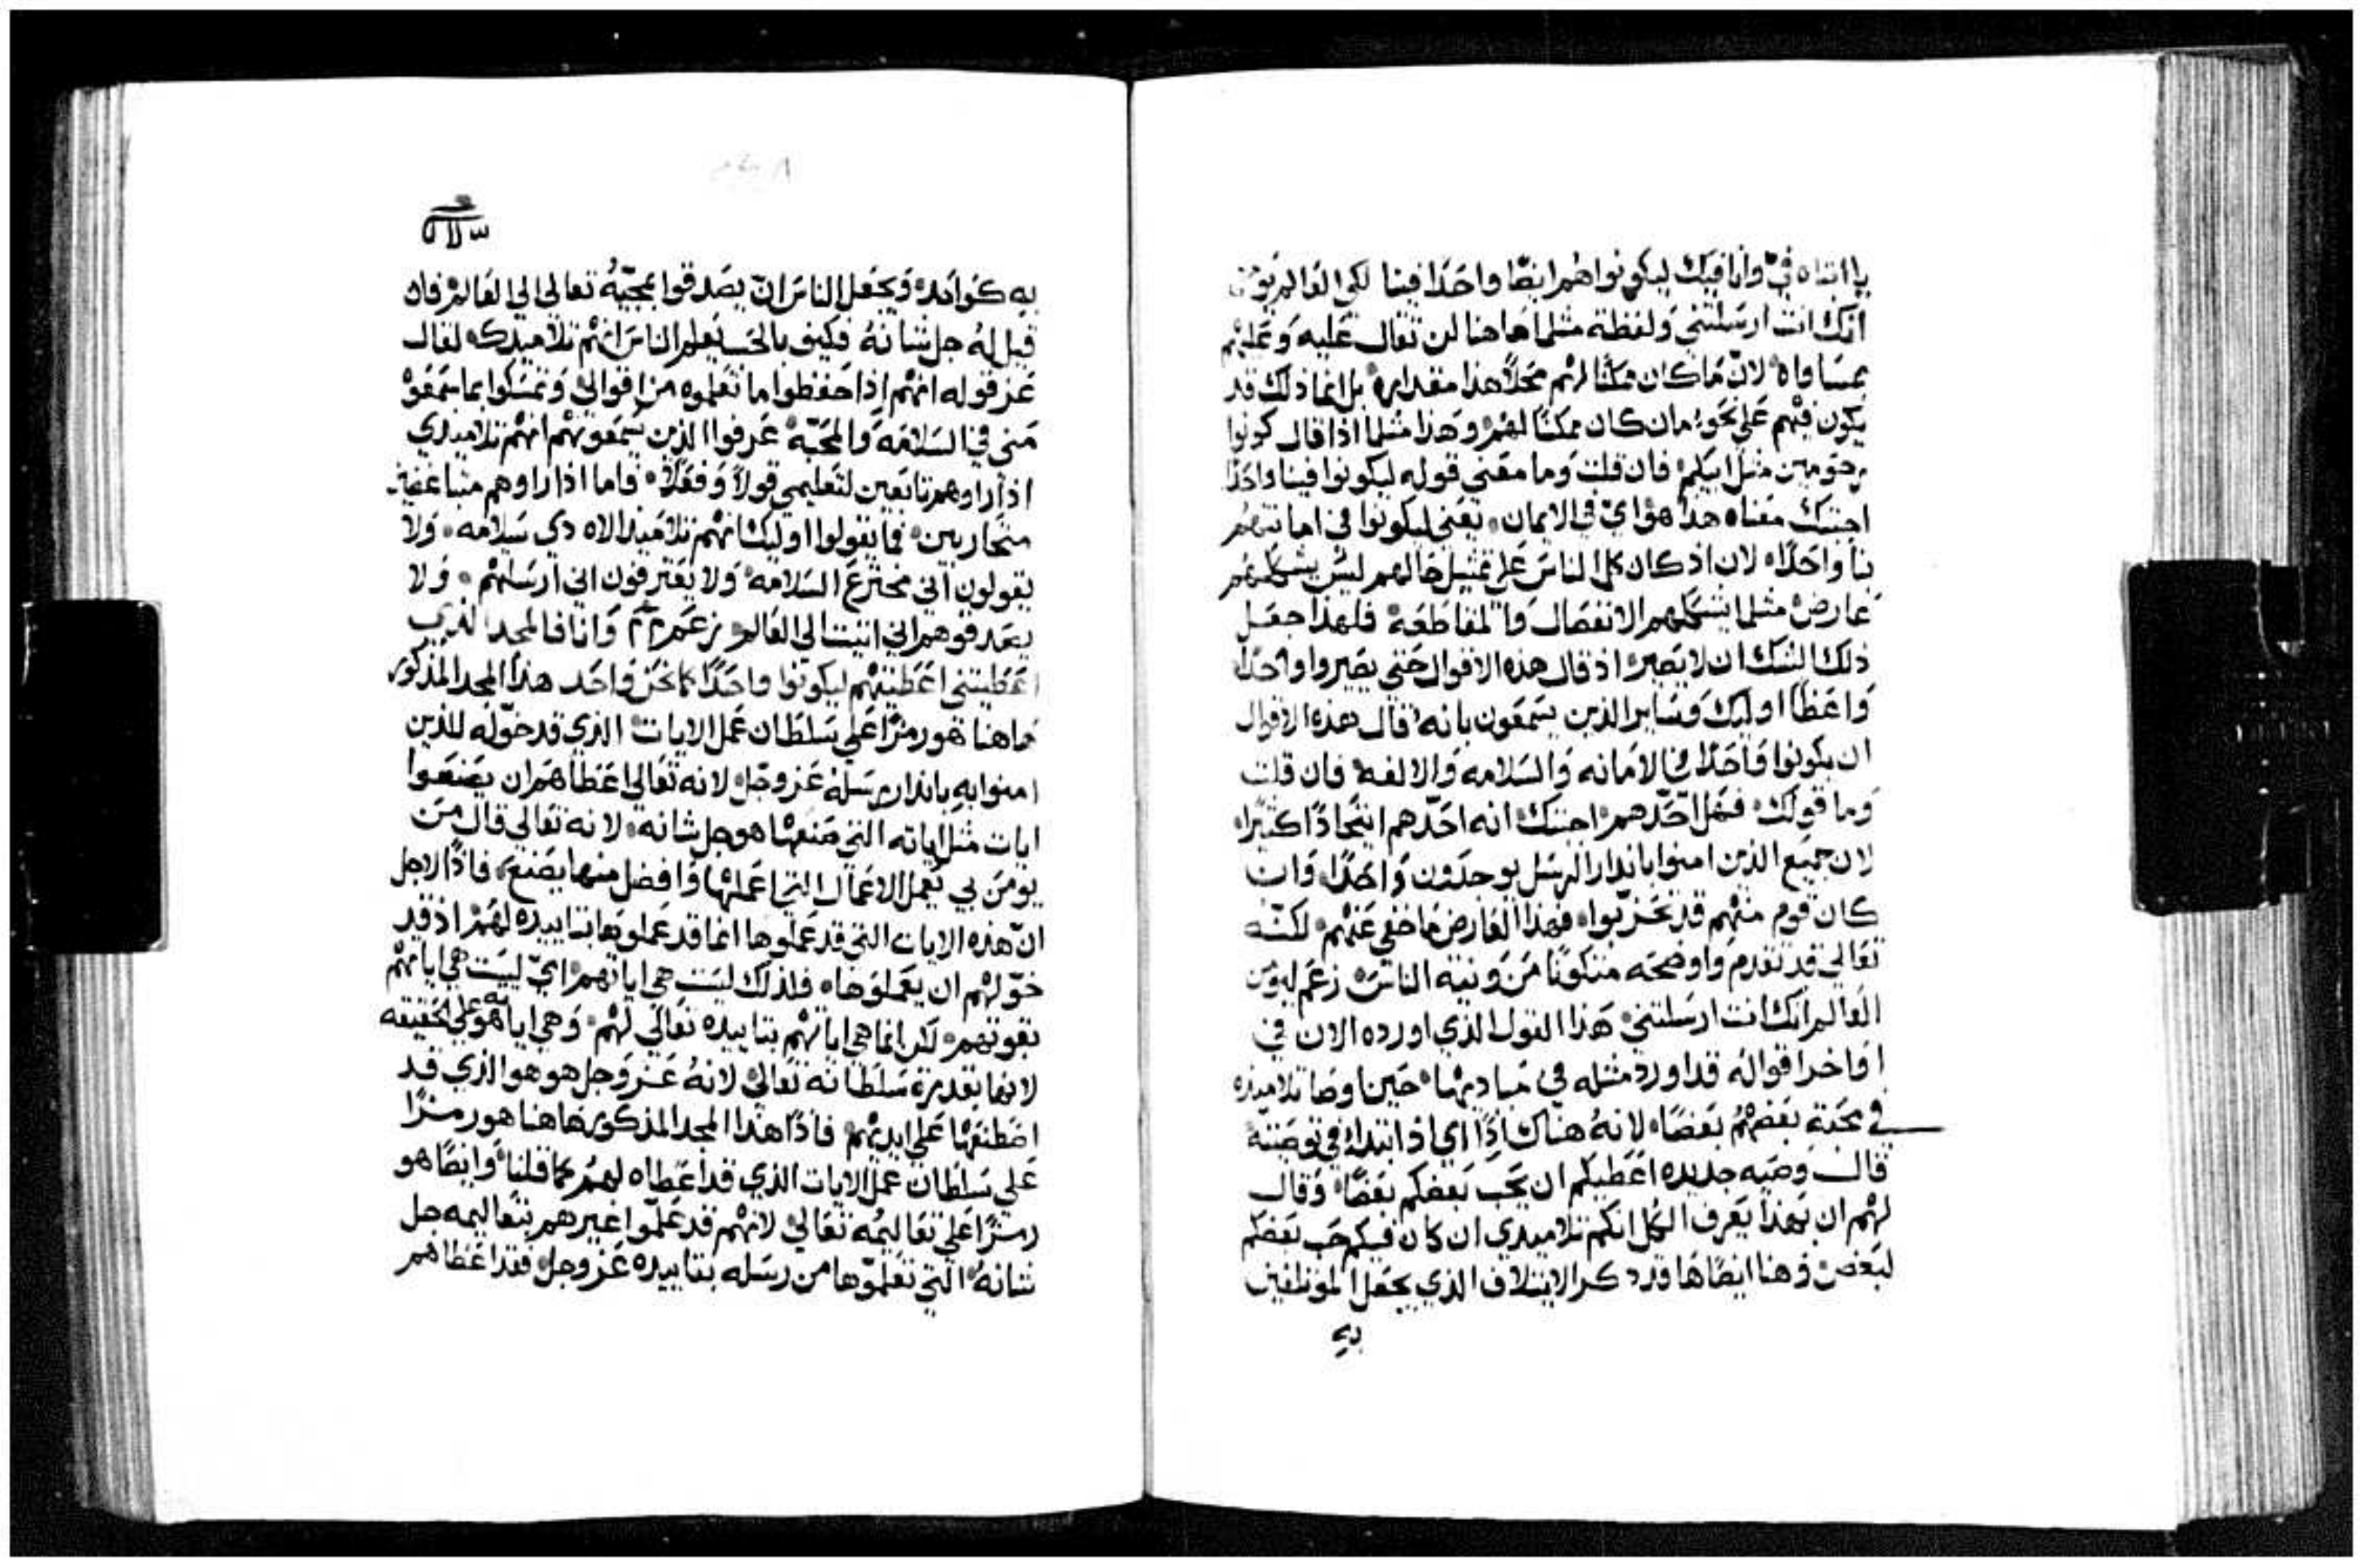 يا ابتاه فيّ وانا فيك ليكونوا هم ايضًا واحدًا فينا لكي العالم يومن
انك انت ارسلتني ولفظة مثلما هاهنا لن تقال عليه وعليهم
بمساواه لان ما كان ممكنا لهم محلاً هذا مقداره بل انما ذلك قد
يكون فيهم علي نحو مان كان ممكنًا لهم وهذا مثلما اذا قال كونوا
مرحومين مثل ابيكم فان قلت وما معني قوله ليكونوا فينا واحدًا
اجبتك معناه هذا هو اي في الايمان يعني ليكونوا في امانتهم
بنا واحدًا لان اذ كان كل الناس علي تمثيل حالهم ليس يشككهم
عارض مثلما يشككهم الانفصال والمقاطعة فلهذا جعل
ذلك الشك ان لا يصير اذ قال هذه الاقوال حتي يصيروا واحدًا
واعظًا اوليك وساير الذين يسمعون بانه قال هذه الاقوال
ان يكونوا واحدًا في الامانه والسلامه والالفه فان قلت
وما قولك فهل احّدهم اجبتك انه احّدهم ايتحادًا كثيرًا
لان جميع الذين امنوا بانذار الرسل يوحدون واحدًا وان
كان قوم منهم قد تحزبوا فهذا العارض ما خفي عنهم لكنه
تعالي قد تقدم واوضحه متكونًا من ونية الناس زعم ليومن
العالم انك انت ارسلتني هذا القول الذي اورده الان في
اواخر اقواله قد اورد مثله في مباديها حين اوصا تلاميذه
في محبة بعضهم بعضًا لانه هناك اذا اي اذ ابتدا في توصيته
قال وصيه جديده اعطيكم ان يحب بعضكم بعضًا وقال
لهم ان بهذا يعرف الكل انكم تلاميدي ان كان فيكم حب بعضكم
لبعض وهنا ايضًا ها قد دكر الايتلاف الذي يجعل الموتلفين
به
به كواحد ويجعل الناس ان يصدقوا بمجيّهُ تعالي الي العالم فان
قيل له جل شانه فكيف بالحب يعلم الناس انهم تلاميدك لقال
عز قوله انهم اذا حفظوا ما تعلموه من اقوالي وتمسكوا بما سمعوْ
مني في السلامه والمحبّة عرفوا الذين يسمعونهم انهم تلاميدي
اذ اراوهم تابعين لتعليمي قولاً وفعلاً فاما اذا راوهم متباغضين
متحاربين فما يقولوا اوليك انهم تلاميذ الاه دي سلامه ولا
يقولون اني مخترع السلامه ولا يعترفون اني ارسلتهم ولا
يصدقوهم اني اتيت الي العالم زعم وانا فالمجد الذي
اعطيتني اعطيتهم ليكونوا واحدًا كما نحن واحد هذا المجد المذكور
هاهنا هو رمزًا علي سلطان عمل الايات الذي قد خوّله للذين
امنوا به بانذار رسله عز وجل لانه تعالي اعطاهم ان يصنعوا
ايات مثل اياته التي صنعها هو جل شانه لانه تعالي قال من
يومن بي يعمل الاعمال التي اعملها وافضل منها يصنع فاذًا لاجل
انّ هذه الايات التي قد عملوها انما قد عملوها بتاييده لهم اذ قد
خوّلهم ان يعملوها فلذلك ليست هي اياتهم ايّ ليست هي اياتهم
بقوتهم لكن انما هي اياتهم بتاييده تعالي لهم وهي اياته هو علي الحقيقه
لانها بقدرة سلطانه تعالي لانهُ عز وجل هو هو الذي قد
اصطنعها علي ايديهم فاذًا هذا المجد المذكور هاهنا هو رمزًا
علي سلطان عمل الايات الذي قد اعطاه لهم كما قلنا وايضًا هو
رمزًا علي تعاليمه تعالي لانهم قد علّموا غيرهم بتعاليمه جل
شانهُ التي تعلموّها من رسله بتاييده عز وجل فقد اعطاهم